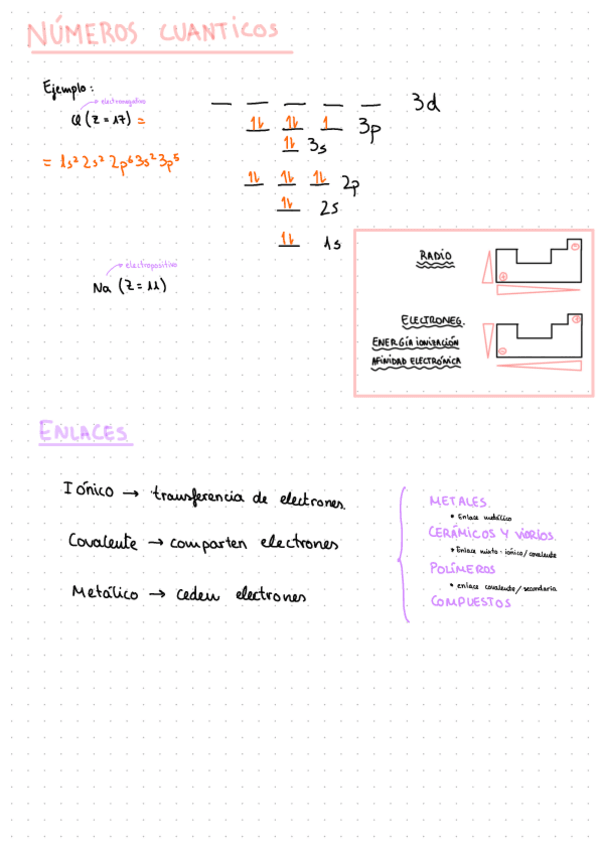 NÚMEROS CUANTICOS
Ejemplo:
electronegativo
Cl (Z = 17) =
= 1s² 2s² 2p⁶ 3s² 3p⁵
3d
3p
3s
2p
2s
1s
electropositivo
Na (Z = 11)
RADIO
ELECTRONEG.
ENERGÍA IONIZACIÓN
AFINIDAD ELECTRÓNICA
ENLACES
Iónico → transferencia de electrones.
Covalente → comparten electrones
Metálico → ceden electrones
METALES.
• Enlace metálico
CERÁMICOS Y VIDRIOS.
• Enlace mixto: iónico/covalente
POLÍMEROS
• enlace covalente/secundario
COMPUESTOS